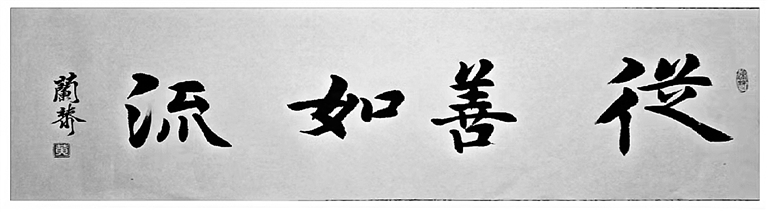 從善如流
蘭